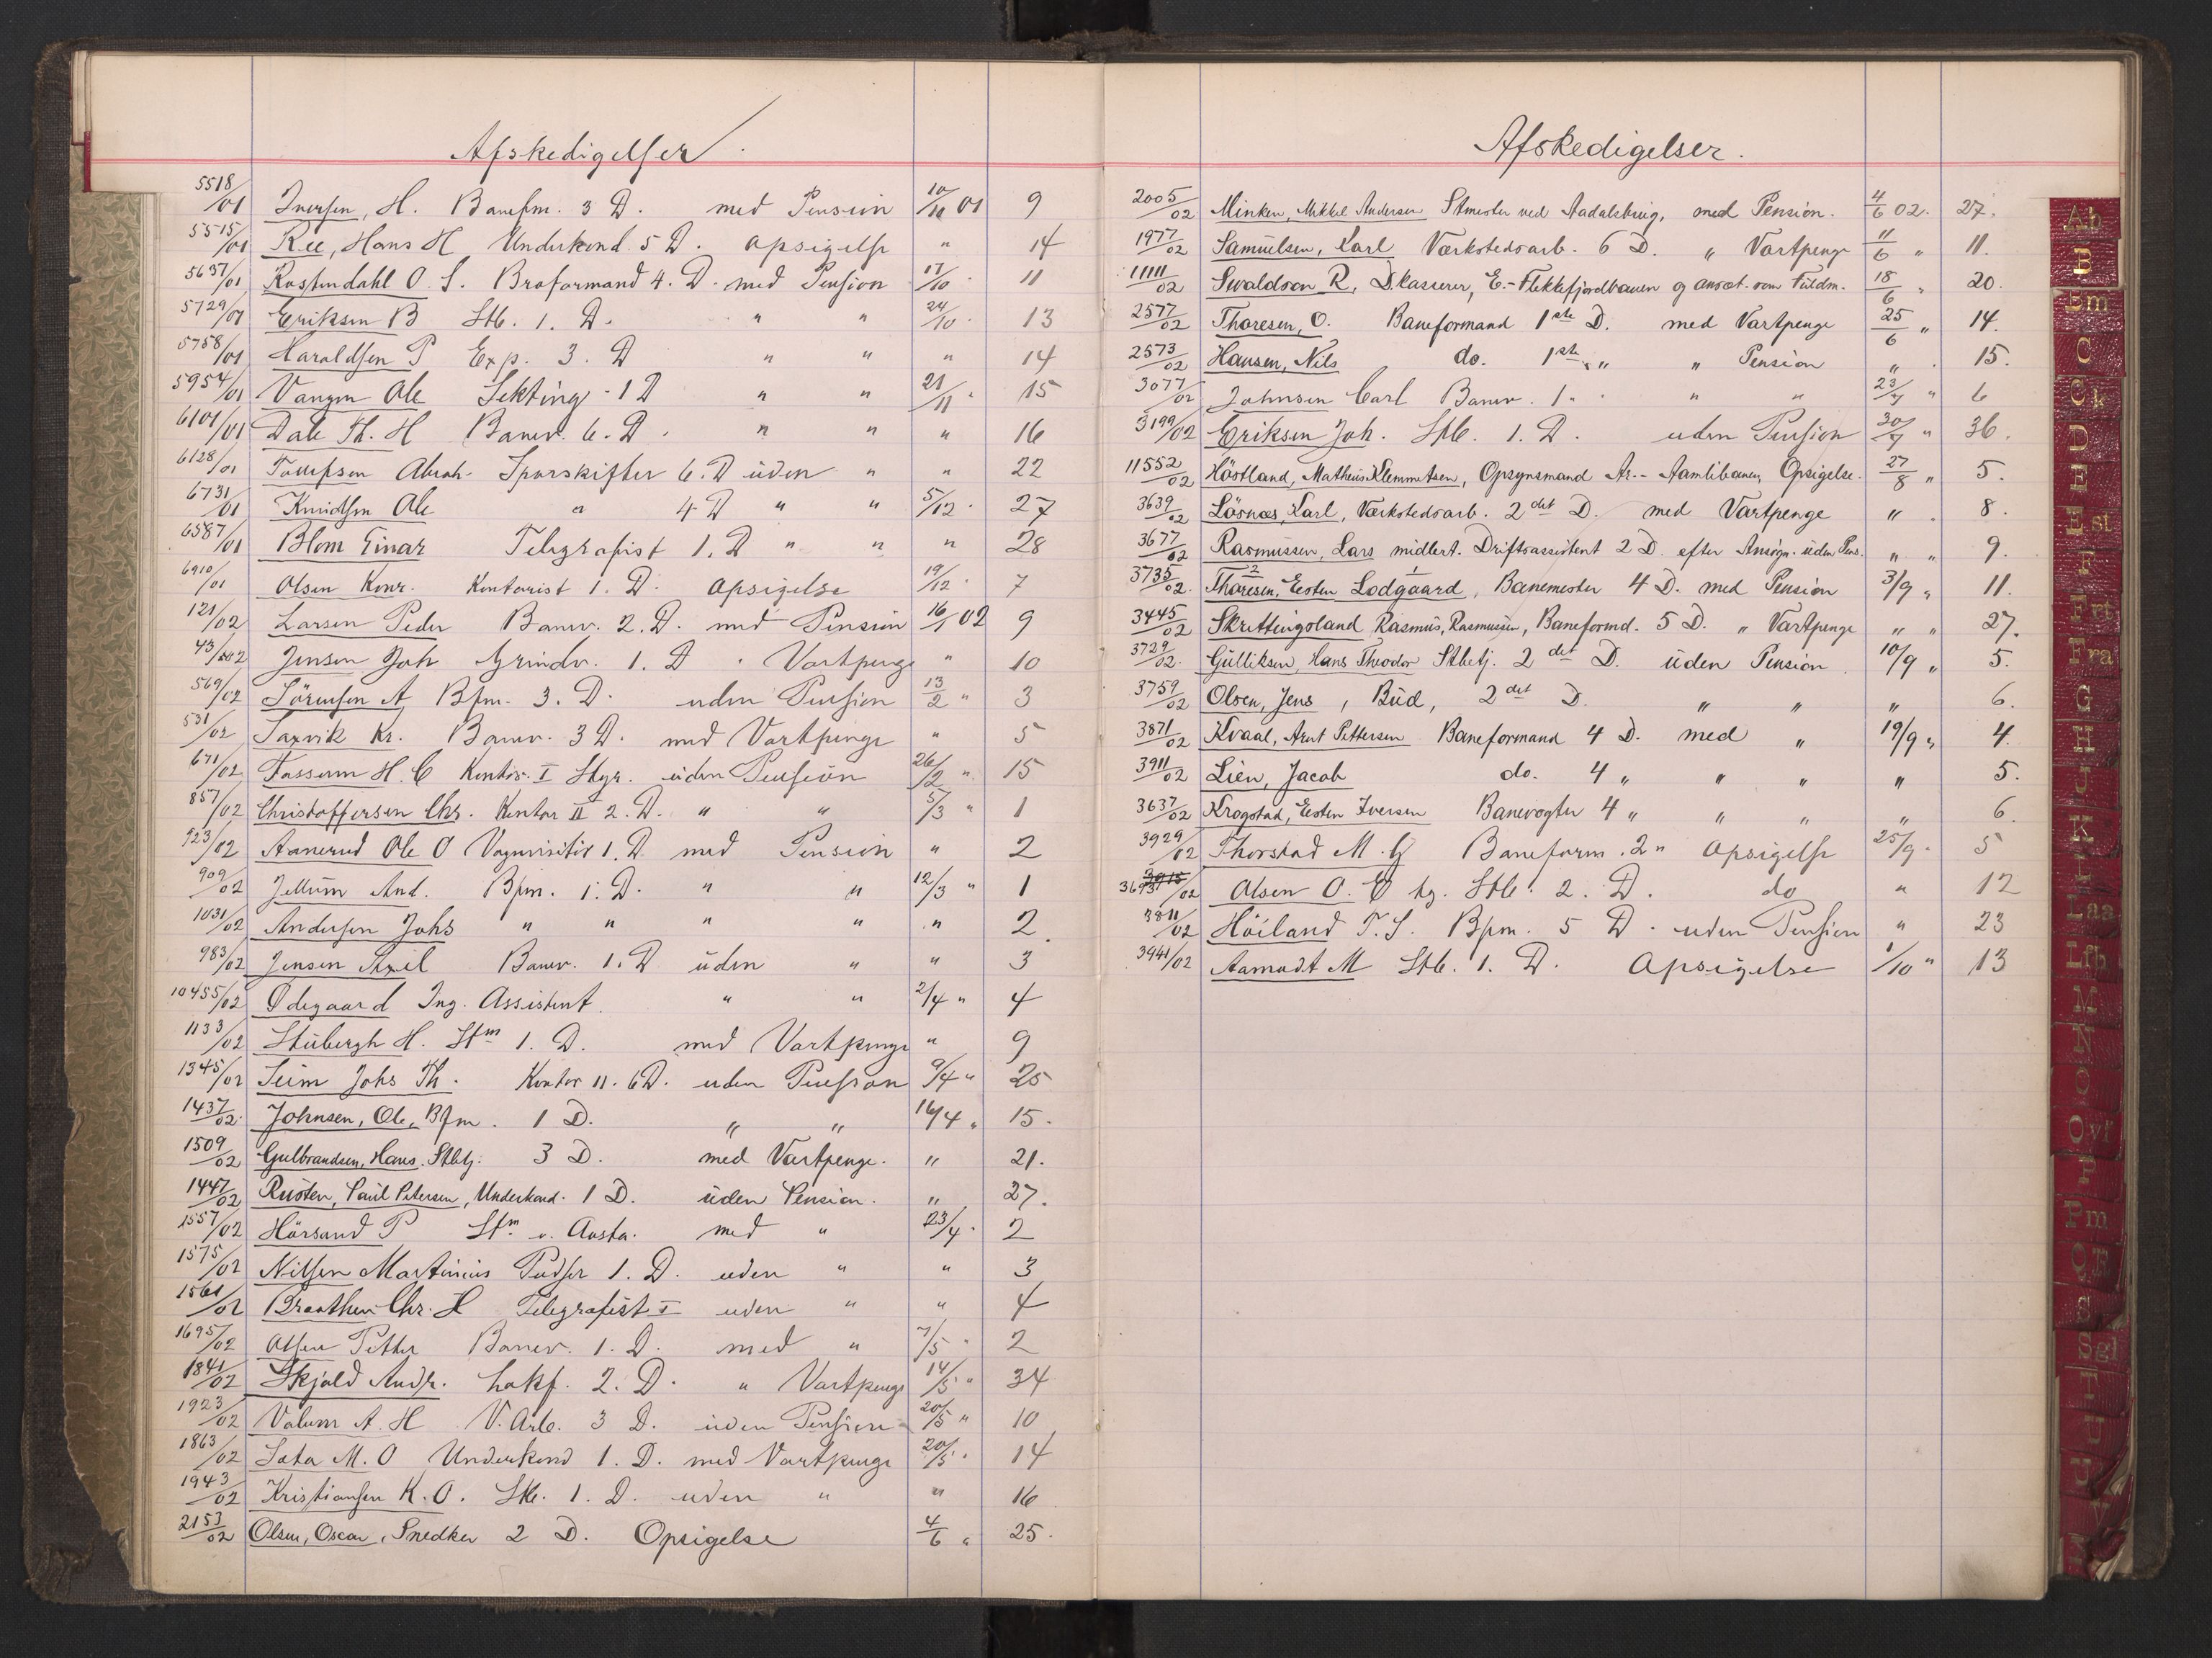 Afskedigelser.
5518/01 Iversen, H. Banefm. 3 D. med Pension 10/10 01 9
5515/01 Ree, Hans H Underkond 5 D. Opsigelse " 14
5637/01 Rostendahl O. S. Broformand 4. D. med Pension 17/10 11
5729/01 Eriksen B Stb. 1. D. " " 24/10 13
5758/01 Haraldsen P Exp. 3. D " " " 14
5954/01 Vangen Ole Sekting. 1 D " " 21/11 " 15
6101/01 Dale Th. H Banev. 6. D. " " " 16
6128/01 Abrah. Sporskifter 6. D uden " " 22
6731/01 Knudsen Ole " 4 D " " 5/12 27
6587/01 Blom Einar Telegrafist 1. D " " " 28
6910/01 Olsen Konr. Kontorist 1. D. Opsigelse 19/12 7
121/02 Larsen Peder Banev. 2. D. med Pension 16/1 02 9
43/02 Jensen Joh Grindv. 1. D " Vartpenge " 10
569/02 Sörensen A. Bfm. 3. D. uden Pension 13/2 " 3
531/02 Saxvik Kr. Banev. 3 D. med Vartpenge " 5
671/02 Fossum H. C Kontor. I Styr. uden Pension 26/2 " 15
857/02 Christoffersen Chr. Kontor II 2. D. " " 5/3 " 1
923/02 Aanerud Ole O Vognvisitør 1. D. med Pension " 2
909/02 Jellum And. Bfm. 1. D. " " 12/3 " 1
1031/02 Andersen Johs " " " " " 2.
983/02 Jensen Axel Banev. 1. D uden " " 3
10455/02 Ødegaard Ing. Assistent. " " 2/4 " 4
1133/02 Stübergh H. Stm 1. D. med Vartpenge " 9
1345/02 Seim Johs Th. Kontor II. 6 D. uden Pension 9/4 " 25
1437/02. Johnsen, Ole, Bfm. 1 D. " " 16/4 " 15.
1509/02 Gulbrandsen, Hans. Stbetj. 3 D. med Vartpenge. " 21.
1447/02 Rusten, Paul Petersen, Underkond. 1 D. uden Pension. " 27.
1557/02 Hörsand P Stm v. Austa. med " 23/4 2
1575/02 Nilsen Martinius Pudser 1. D. uden " " 3
1561/02 Braathen Chr. H Telegrafist I uden " " 4
1695/02 Olsen Petter Banev. 1. D. med " 7/5 " 2
1841/02 Skjold Andr. Lokf. 2. D. " Vartpenge 14/5 " 34
1923/02 Valum A. H V. Arb. 3 D. uden Pension 20/5 " 10
1863/02 Sata M. O Underkond 1. D. med Vartpenge 20/5 " 14
1943/02 Kristiansen K. O. Stb. 1. D. uden " " 16
2153/02 Olsen, Oscar, Snedker 2 D. Opsigelse 4/6 " 25.
Afskedigelser.
2005/02 Minken, Mikkel Andersen Stmester ved Aadalsbrug, med Pension. 4/6 02. 27.
1977/02 Samuelsen, Karl Værkstedsarb. 6 D. " Vartpenge 11/6 " 11.
11111/02 Swaldson R, D.kasserer, E.-Flekkefjordbanen og ansat. som Fuldm. 18/6 " 20.
2577/02 Thoresen, O. Baneformand 1ste D. med Vartpenge 25/6 " 14.
2573/02 Hansen, Nils do. 1ste " " Pension " 15.
3077/02 Johnsen Carl Banev. 1 " " " 23/7 " 6
3199/02 Eriksen Joh. Stb. 1. D. uden Pension 30/7 " 36.
11552/02 Höstland, Matheus Klemmetsen, Opsynsmand Ar.-Aamlibanen, Opsigelse. 27/8 " 5.
3639/02 Lösnæs, Karl, Værkstedsarb. 2det D. med Vartpenge " " 8.
3677/02 Rasmussen, Lars midlert. Driftsassistent 2 D. efter Ansøgn. uden Pens. " " 9.
3735/02. Thoresen, Eesten Lodgaard, Banemester 4 D. med Pension 3/9 " 11.
3445/02 Skrettingsland Rasmus, Rasmussen, Baneformd. 5 D. " Vartpenge " " 27.
3729/02. Gulliksen, Hans Theodor Stbetj. 2det D. uden Pension. 10/9 " 5.
3759/02 Olsen, Jens, Bud, 2det D. " " " 6.
3871/02 Kvaal, Arnt Pettersen Baneformand 4 D. med " 19/9 " 4.
3911/02 Lien, Jacob do. 4 " " " " 5.
3637/02 Krogstad, Eesten Iversen Banevogter 4 " " " " 6.
3929/02 Thorstad M. G Baneform. 2 " Opsigelse 25/9 5
3693/02 Olsen O. E tg. Stb. 2. D. do " 12
3811/02 Höiland T. S. Bfm. 5 D. uden Pension " 23
3941/02 Aamodt M Stb. 1. D. Opsigelse 1/10 " 13
Ab
B
Bm
C
Ck
D
E
Est
F
Frt
Fra
G
H
J
K
L
Laa
Lfb
M
N
O
Ovf
P
Pm
S
Sgl
T
U
V